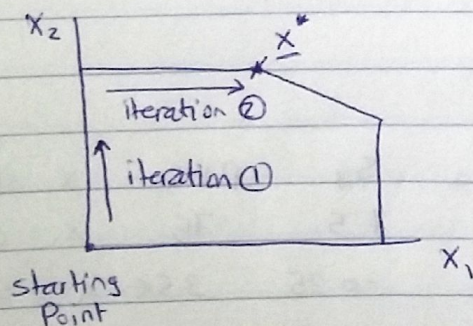 X₂
X*
iteration ②
iteration ①
X₁
starting
Point